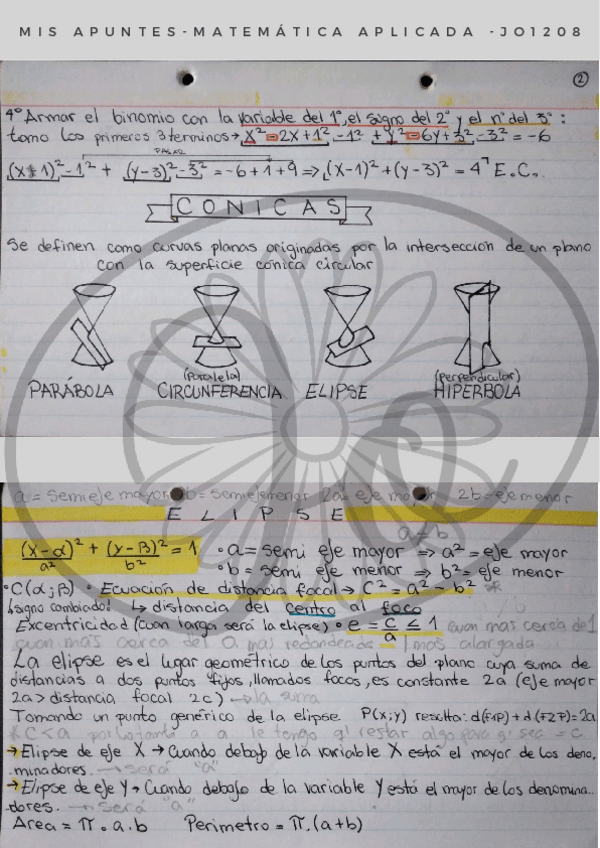 MIS APUNTES-MATEMÁTICA APLICADA -JO1208
2
4º Armar el binomio con la variable del 1º, el signo del 2º y el nº del 3º :
tomo los primeros 3 terminos → x² - 2x + 1² - 1² + y² - 6y + 3² - 3² = -6
PASAR
(x-1)² - 1² + (y-3)² - 3² = -6 + 1 + 9 ⇒ (x-1)² + (y-3)² = 4 E.C.
CONICAS
Se definen como curvas planas originadas por la interseccion de un plano
con la superficie cónica circular
(Paralela) (perpendicular)
PARÁBOLA CIRCUNFERENCIA ELIPSE HIPERBOLA
a = semieje mayor b = semieje menor 2a = eje mayor 2b = eje menor
ELIPSE
a ≠ b
(x-α)²/a² + (y-β)²/b² = 1 • a = semi eje mayor ⇒ a² = eje mayor
• b = semi eje menor ⇒ b² = eje menor
• C(α;β) • Ecuación de distancia focal → C² = a² - b² *
¡signo cambiado! ↳ distancia del centro al foco
Excentricidad (cuan larga será la elipse) • e = c/a ≤ 1 cuan mas cerca de 1
cuan más cerca del 0 mas redondeada mas alargada
La elipse es el lugar geométrico de los puntos del plano cuya suma de
distancias a dos puntos fijos, llamados focos, es constante 2a (eje mayor
2a > distancia focal 2c) → la suma
Tomando un punto genérico de la elipse P(x;y) resulta: d(F1P) + d(F2P) = 2a
* C < a por lo tanto a a le tengo q' restar algo para q' sea = c
→ Elipse de eje X → Cuando debajo de la variable X está el mayor de los deno.
minadores. → será "a"
→ Elipse de eje Y → Cuando debajo de la variable Y está el mayor de los denomina..
dores. → será "a"
Area = π . a . b Perimetro = π . (a+b)